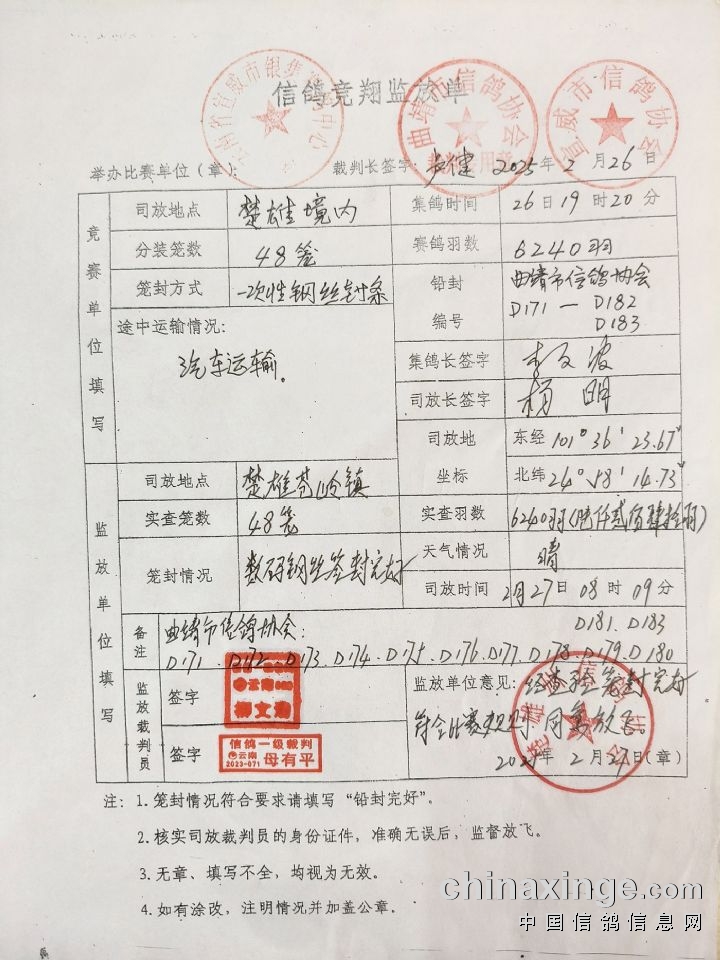 信鸽竞翔监放单
曲靖市信鸽协会
宣威市信鸽协会
举办比赛单位(章): 裁判长签字: 2025年2月26日
竞赛单位填写
司放地点 楚雄境内 集鸽时间 26日19时20分
分装笼数 48笼 赛鸽羽数 6240羽
笼封方式 一次性钢丝封条 铅封编号 曲靖市信鸽协会
D171—D182
D183
途中运输情况:
汽车运输.
集鸽长签字
司放长签字 杨明
司放地坐标 东经 101°36′23.67″
北纬 24°58′14.73″
监放单位填写
司放地点 楚雄苍岭镇
实查笼数 48笼 实查羽数 6240羽(陆仟贰佰肆拾羽)
笼封情况 数码钢丝签封完好 天气情况 晴
司放时间 2月27日08时09分
备注 曲靖市信鸽协会: D181.D183
D171.D172.D173.D174.D175.D176.D177.D178.D179.D180
监放裁判员
签字
签字 信鸽一级裁判
云南
2023-071 母有平
监放单位意见: 经查验笼封完好
符合比赛规则,同意放飞。
2025年2月27日(章)
注: 1.笼封情况符合要求请填写“铅封完好”。
2.核实司放裁判员的身份证件,准确无误后,监督放飞。
3.无章、填写不全,均视为无效。
4.如有涂改,注明情况并加盖公章。
chinaxinge.com
中国信鸽信息网